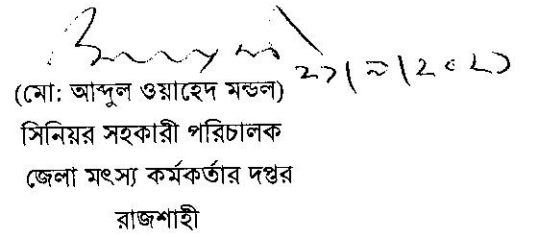 (মো: আব্দুল ওয়াহেদ মন্ডল)
সিনিয়র সহকারী পরিচালক
জেলা মৎস্য কর্মকর্তার দপ্তর
রাজশাহী